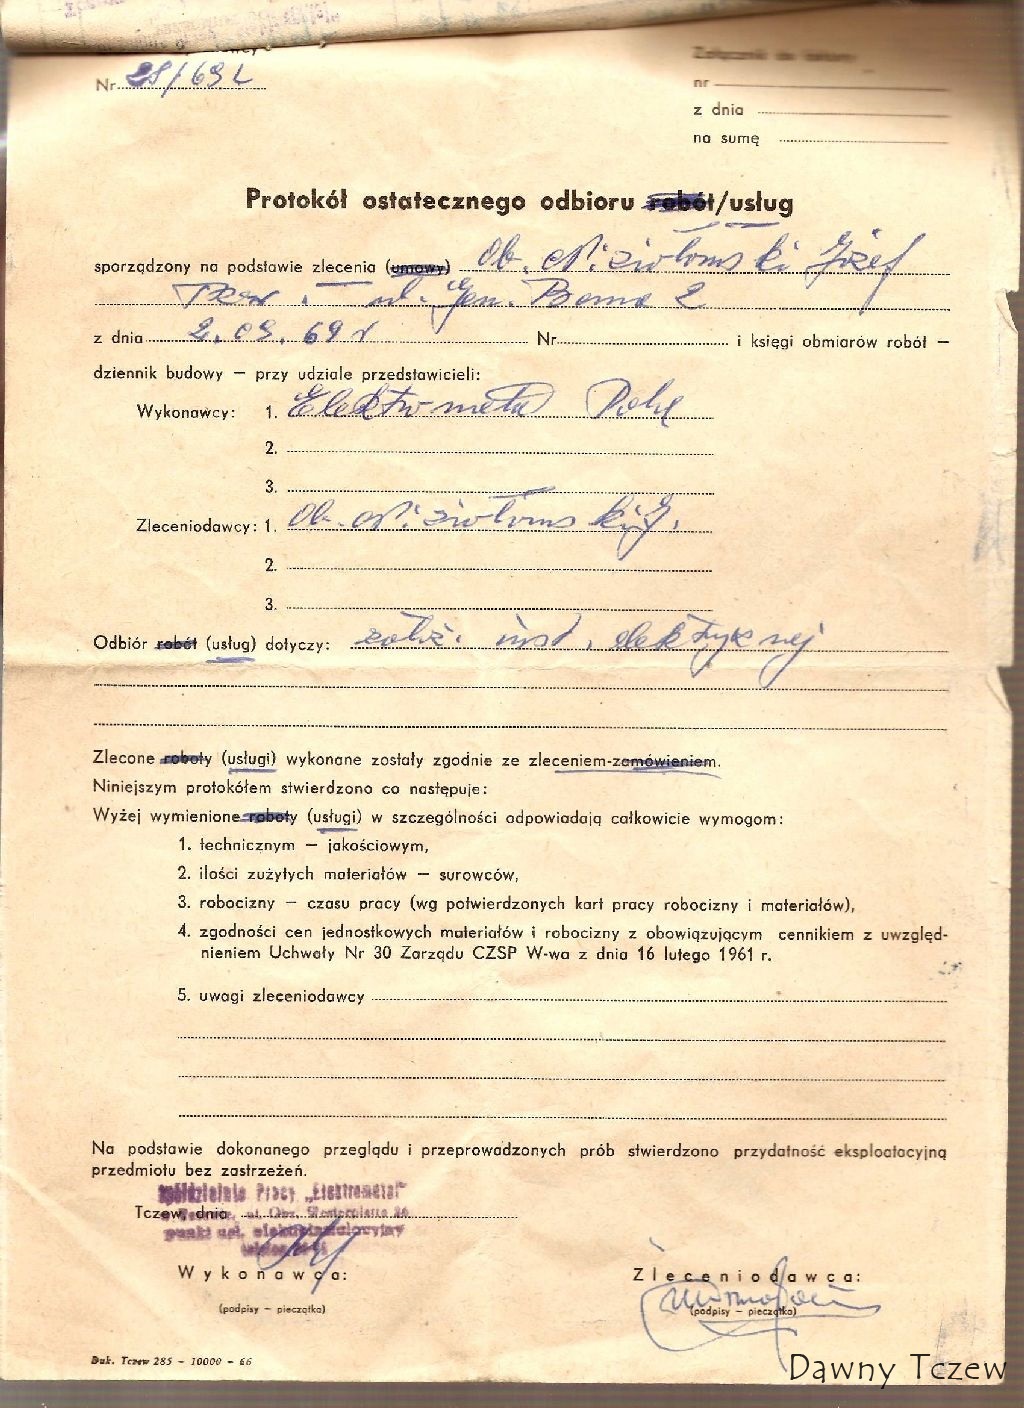 Nr 28/69 L
Załącznik do faktury
nr
z dnia
na sumę
Protokół ostatecznego odbioru robót/usług
sporządzony na podstawie zlecenia (umowy) Ob. Niziołomski Józef
Tczew ul. Gen. Bema 2
z dnia 2.09.69 r Nr i księgi obmiarów robót —
dziennik budowy — przy udziale przedstawicieli:
Wykonawcy: 1. Elektrometal
2.
3.
Zleceniodawcy: 1. Ob. Niziołomski J.
2.
3.
Odbiór robót (usług) dotyczy: założ. inst. elektrycznej
Zlecone roboty (usługi) wykonane zostały zgodnie ze zleceniem-zamówieniem.
Niniejszym protokółem stwierdzono co następuje:
Wyżej wymienione roboty (usługi) w szczególności odpowiadają całkowicie wymogom:
1. technicznym — jakościowym,
2. ilości zużytych materiałów — surowców,
3. robocizny — czasu pracy (wg potwierdzonych kart pracy robocizny i materiałów),
4. zgodności cen jednostkowych materiałów i robocizny z obowiązującym cennikiem z uwzględ-
nieniem Uchwały Nr 30 Zarządu CZSP W-wa z dnia 16 lutego 1961 r.
5. uwagi zleceniodawcy
Na podstawie dokonanego przeglądu i przeprowadzonych prób stwierdzono przydatność eksploatacyjną
przedmiotu bez zastrzeżeń.
Spółdzielnia Pracy „Elektrometal"
Tczew, dnia
ul. Obr. Westerplatte
punkt usł. elektroinstalacyjny
Wykonawca: Zleceniodawca:
(podpisy — pieczątka) (podpisy — pieczątka)
Duk. Tczew 285 — 10000 — 66
Dawny Tczew